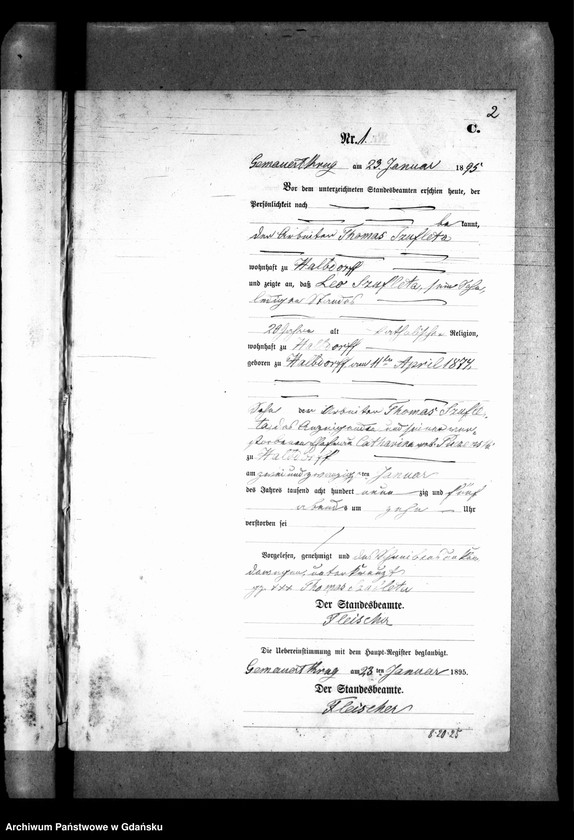 2
C.
Nr. 1.
Gemauert Krug am 23. Januar 1895
Vor dem unterzeichneten Standesbeamten erschien heute, der
Persönlichkeit nach
be kannt,
der Arbeiter Thomas Szafleta
wohnhaft zu Walddorff
und zeigte an, daß Leo Szafleta, sein Sohn,
ledigen Standes
20 Jahre alt katholischer Religion,
wohnhaft zu Walddorff
geboren zu Walddorff am 11ten April 1874.
Sohn der Arbeiter Thomas Szafle-
ta des Anzeigenden und seiner ver-
storbenen Ehefrau Catharina geb.
zu Walddorff
am zwei und zwanzigsten Januar
des Jahres tausend acht hundert neun zig und fünf
abends um zehn Uhr
verstorben sei
Vorgelesen, genehmigt und des Schreibens unkun
deswegen unterkreuzt
gz. xxx Thomas Szafleta
Der Standesbeamte.
Fleischer
Die Uebereinstimmung mit dem Haupt-Register beglaubigt.
Gemauert Krug am 23 ten Januar 1895.
Der Standesbeamte.
Fleischer
8·20·25
Archiwum Państwowe w Gdańsku